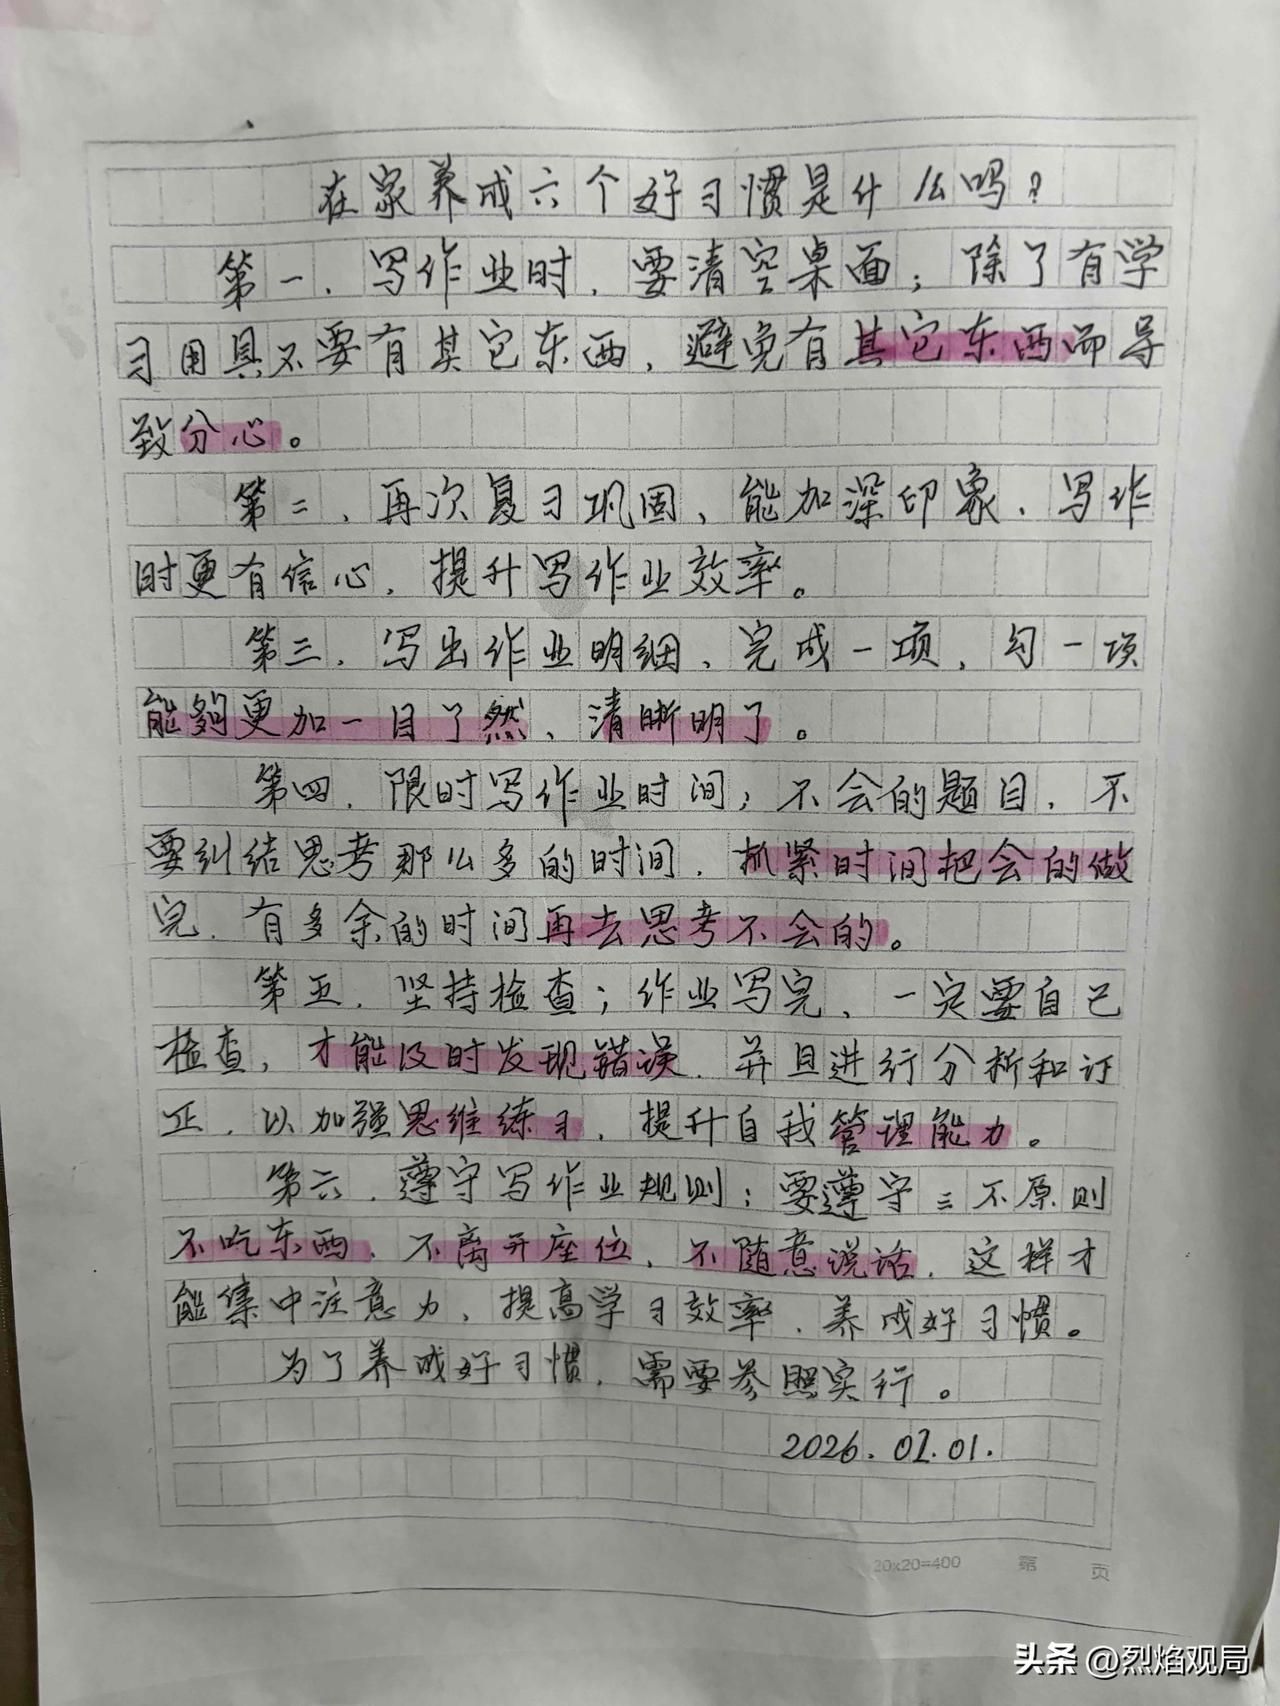 在家养成六个好习惯是什么吗？
第一、写作业时，要清空桌面；除了有学
习用具不要有其它东西，避免有其它东西而导
致分心。
第二、再次复习巩固、能加深印象、写作
时更有信心，提升写作业效率。
第三、写出作业明细、完成一项，勾一项
能够更加一目了然、清晰明了。
第四、限时写作业时间；不会的题目，不
要纠结思考那么多的时间，抓紧时间把会的做
完，有多余的时间再去思考不会的。
第五、坚持检查；作业写完，一定要自己
检查，才能及时发现错误，并且进行分析和订
正，以加强思维练习，提升自我管理能力。
第六、遵守写作业规则；要遵守三不原则
不吃东西、不离开座位、不随意说话，这样才
能集中注意力，提高学习效率、养成好习惯。
为了养成好习惯，需要参照实行。
2026.01.01.
20x20=400 第 页
头条 @烈焰观局